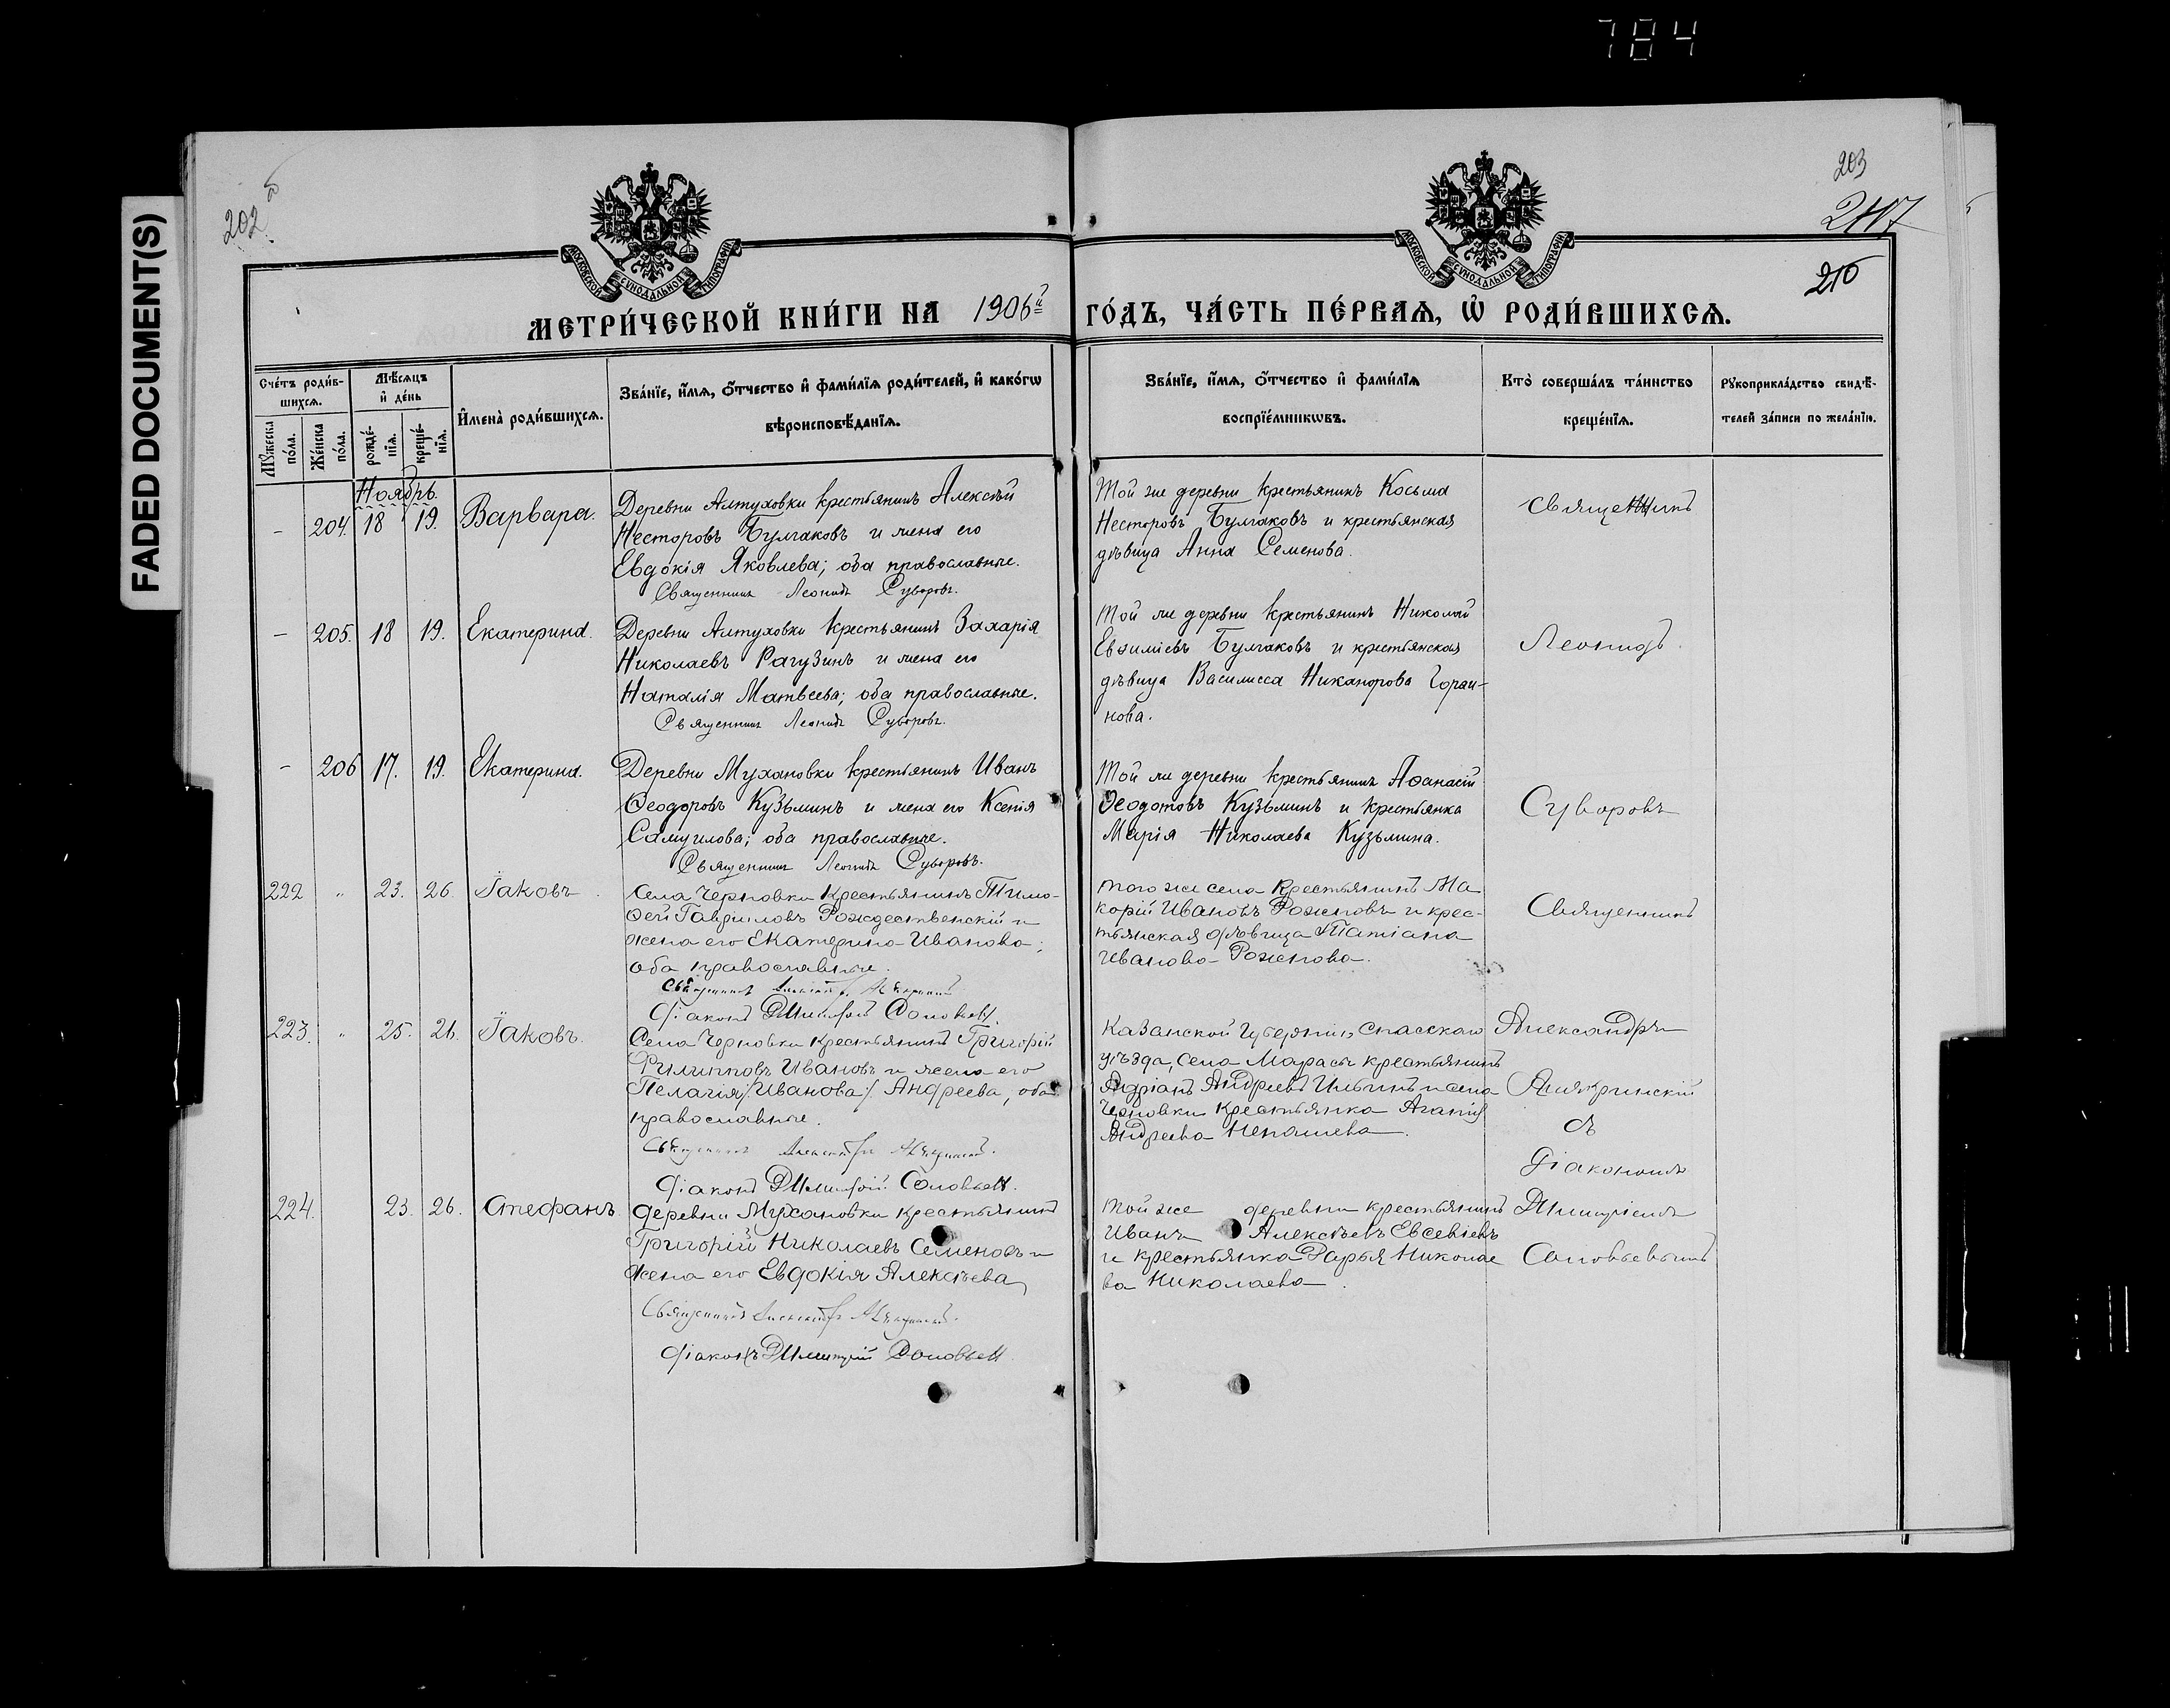 784
FADED DOCUMENT(S)
202 об
203
217
210
МОСКОВСКОЙ СУНОДАЛЬНОЙ ТИПОГРАФІИ
МОСКОВСКОЙ СУНОДАЛЬНОЙ ТИПОГРАФІИ
МЕТРИ́ЧЕСКОЙ КНИ́ГИ НА 1906й ГО́ДЪ, ЧА́СТЬ ПЕ́РВАѦ, Ѡ҆ РОДИ́ВШИХСѦ.
Сче́тъ роди́в-
шихсѧ.
Мꙋ́жеска по́ла.
Же́нска по́ла.
Мѣ́сѧцъ
и҆ де́нь
рожде́-
нїѧ.
креще́-
нїѧ.
И҆мена̀ роди́вшихсѧ.
Зва́нїе, и҆́мѧ, ѻ҆́тчество и҆ фами́лїѧ роди́телей, и҆ како́гѡ
вѣроисповѣ́данїѧ.
Зва́нїе, и҆́мѧ, ѻ҆́тчество и҆ фами́лїѧ
воспрїе́мникѡвъ.
Кто̀ соверша́лъ та́инство
креще́нїѧ.
Рꙋкоприкла́дство свидѣ́-
телей за́писи по жела́нїю.
Ноябрь.
– 204. 18 19. Варвара.
Деревни Алтуховки крестьянинъ Алексѣй
Несторовъ Булгаковъ и жена его
Евдокія Яковлева; оба православные.
Священникъ Леонидъ Суворовъ.
Той же деревни крестьянинъ Косьма
Несторовъ Булгаковъ и крестьянская
дѣвица Анна Семенова.
Священникъ
– 205. 18 19. Екатерина.
Деревни Алтуховки крестьянинъ Захарія
Николаевъ Рагузинъ и жена его
Наталія Матвѣева; оба православные.
Священникъ Леонидъ Суворовъ.
Той же деревни крестьянинъ Николай
Евѳиміевъ Булгаковъ и крестьянская
дѣвица Василисса Никанорова Горам-
нова.
Леонидъ
– 206 17. 19. Екатерина.
Деревни Мухановки крестьянинъ Иванъ
Ѳеодоровъ Кузьминъ и жена его Ксенія
Самуилова; оба православные.
Священникъ Леонидъ Суворовъ.
Той же деревни крестьянинъ Аѳанасій
Ѳеодотовъ Кузьминъ и крестьянка
Марія Николаева Кузьмина.
Суворовъ
222 „ 23. 26. Іаковъ.
Села Черновки крестьянинъ Тимо-
ѳей Гавриловъ Рождественскій и
жена его Екатерина Иванова;
оба православные.
Священникъ
Діаконъ Димитрій Соловьевъ.
того же села крестьянинъ Ма
карій Ивановъ Роженовъ и крес-
тьянская дѣвица Татіана
Иванова Роженова.
Священникъ
223. „ 25. 26. Іаковъ.
Села Черновки крестьянинъ Григорій
Филипповъ Ивановъ и жена его
Пелагія /Иванова/ Андреева, оба
православные.
Священникъ Александръ
Діаконъ Димитрій Соловьевъ.
Казанской Губерніи, Спасскаго
уѣзда, села Марасы крестьянинъ
Адріанъ Андреевъ Ильинъ и села
Черновки крестьянка Агапія
Андреева Ненашева.
Александръ
Аникринскій
съ
Діакономъ
224. 23. 26. Стефанъ.
деревни Мухановки крестьянинъ
Григорій Николаевъ Семеновъ и
жена его Евдокія Алексѣева,
Священникъ Александръ
Діаконъ Димитрій Соловьевъ
той же деревни крестьянинъ
Иванъ Алексѣевъ Евсевіевъ
и крестьянка Дарья Николае
ва Николаева.
Димитріемъ
Соловьевымъ